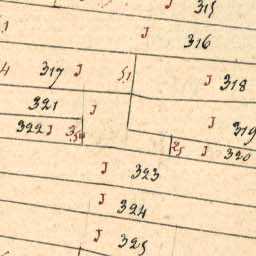 J 315
J 316
317 J 51 J 318
321 J
322 J 35 J 319
25 J 320
J 323
J 324
J 325